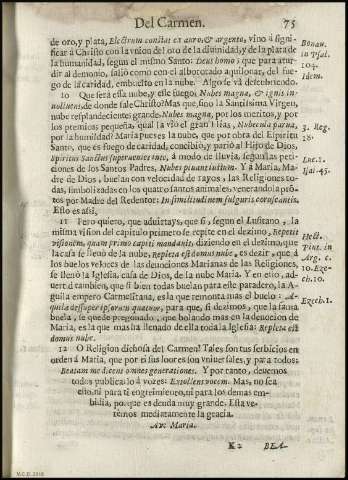 Del Carmen. 75
de oro, y plata, Electrum constat ex auro, & argento, vino à signi-
ficar à Christo con la vnion del oro de la diuinidad, y de la plata de
la humanidad, segun el mismo Santo: Deus homo; que para atur-
dir al demonio, saliò como con el alborotado aquilonar, del fue-
go de la caridad, embuelto en la nube. Algo se và descubriendo.
10 Què serà esta nube, y este fuego; Nubes magna, & ignis in-
uoluens, de donde sale Christo? Mas que, sino la Santissima Virgen,
nube resplandeciente; grande. Nubes magna, por los meritos, y por
los premios pequeña, qual la viò el gran Elias, Nubecula parua,
por la humildad? Maria pues es la nube, que es obra del Espiritu
Santo, que es fuego de caridad, concibio, y pariò al Hijo de Dios,
Spiritus Sanctus superueniet in te, à modo de lluvia, segun las peti-
ciones de los Santos Padres, Nubes pluant iustum. Y à Maria, Ma-
dre de Dios, buelan con velocidad de rayos, las Religiones to-
das, simbolizadas en los quatro santos animales, venerandola pres-
tos por Madre del Redentor: In similitudinem fulguris coruscantis.
Esto es assi,
11 Pero quiero, que aduirtays, que si, segun el Lusitano, la
misma vision del capitulo primero se repite en el dezimo, Repetit
visionem, quam primo capiti mandauit, diziendo en el dezimo, que
la casa se llenò de la nube, Repleta est domus nube, es dezir, que à
los buelos velozes de las deuociones Marianas de las Religiones,
se llenò la Iglesia, casa de Dios, de la nube Maria. Y en esto, ad-
uertid tambien, que si bien todas buelan para este paradero, la A-
guila empero Carmelitana, es la que remonta mas el buelo: A-
quila desuper ipsorum quatuor, para que, si dezimos, que la fama
buela, se quede pregonado, que bolando mas en la deuocion de
Maria, es la que mas ha llenado de ella toda la Iglesia: Repleta est
domus nube.
12 O Religion dichosa del Carmen! Tales son tus seruicios en
orden à Maria, que por si sus loores son vniuersales, y para todos:
Beatam me dicent omnes generationes. Y por tanto, deuemos
todos publicarlo à vozes: Extollens vocem. Mas, no sea
esto, ni para ti engreimiento, ni para los demas em-
bidia, porque es deuda muy grande. Esta ve-
remos mediatamente la gracia.
Ave Maria.
K 2 BEA-
Bonau.
in Psal.
104.
Idem.
3. Reg.
18.
Luc. 1.
Isai. 45.
Hect.
Pint. in
Arg. c.
10. Eze-
ch. 10.
Ezech. 1.